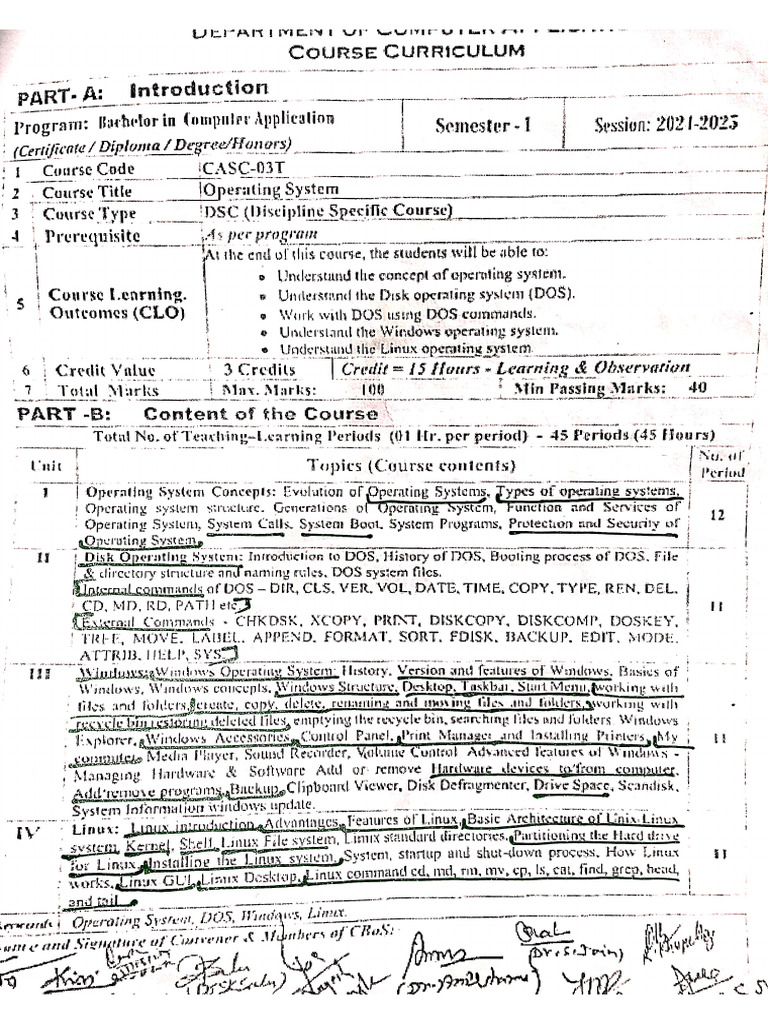 DEPARTMENT OF COMPUTER APPLICATI
COURSE CURRICULUM
PART- A: Introduction
Program: Bachelor in Computer Application
(Certificate / Diploma / Degree/Honors)
Semester - I
Session: 2024-2025
1 Course Code CASC-03T
2 Course Title Operating System
3 Course Type DSC (Discipline Specific Course)
4 Prerequisite As per program
5 Course Learning. Outcomes (CLO)
At the end of this course, the students will be able to:
• Understand the concept of operating system.
• Understand the Disk operating system (DOS).
• Work with DOS using DOS commands.
• Understand the Windows operating system.
• Understand the Linux operating system.
6 Credit Value 3 Credits Credit = 15 Hours - Learning & Observation
7 Total Marks Max. Marks: 100 Min Passing Marks: 40
PART -B: Content of the Course
Total No. of Teaching–Learning Periods (01 Hr. per period) - 45 Periods (45 Hours)
Unit Topics (Course contents) No. of Period
I Operating System Concepts: Evolution of Operating Systems, Types of operating systems,
Operating system structure. Generations of Operating System, Function and Services of
Operating System, System Calls. System Boot. System Programs, Protection and Security of
Operating System.
12
II Disk Operating System: Introduction to DOS, History of DOS, Booting process of DOS, File
& directory structure and naming rules, DOS system files.
Internal commands of DOS – DIR, CLS, VER, VOL, DATE, TIME, COPY, TYPE, REN, DEL,
CD, MD, RD, PATH etc.
External Commands - CHKDSK, XCOPY, PRINT, DISKCOPY, DISKCOMP, DOSKEY,
TREE, MOVE, LABEL, APPEND, FORMAT, SORT, FDISK, BACKUP, EDIT, MODE,
ATTRIB, HELP, SYS
11
III Windows: Windows Operating System: History, Version and features of Windows, Basics of
Windows, Windows concepts, Windows Structure, Desktop, Taskbar, Start Menu, working with
files and folders, create, copy, delete, renaming and moving files and folders, working with
recycle bin restoring deleted files, emptying the recycle bin, searching files and folders. Windows
Explorer, Windows Accessories, Control Panel, Print Manager and Installing Printers, My
computer, Media Player, Sound Recorder, Volume Control Advanced features of Windows -
Managing Hardware & Software Add or remove Hardware devices to/from computer,
Add/remove programs, Backup, Clipboard Viewer, Disk Defragmenter, Drive Space, Scandisk,
System Information windows update.
11
IV Linux: Linux introduction, Advantages, Features of Linux, Basic Architecture of Unix-Linux
system, Kernel, Shell, Linux File system, Linux standard directories, Partitioning the Hard drive
for Linux, Installing the Linux system, System, startup and shut-down process, How Linux
works, Linux GUI, Linux Desktop, Linux command cd, md, rm, mv, cp, ls, cat, find, grep, head,
and tail
11
Keywords Operating System, DOS, Windows, Linux.
ame and Signature of Convener & Members of CBoS: